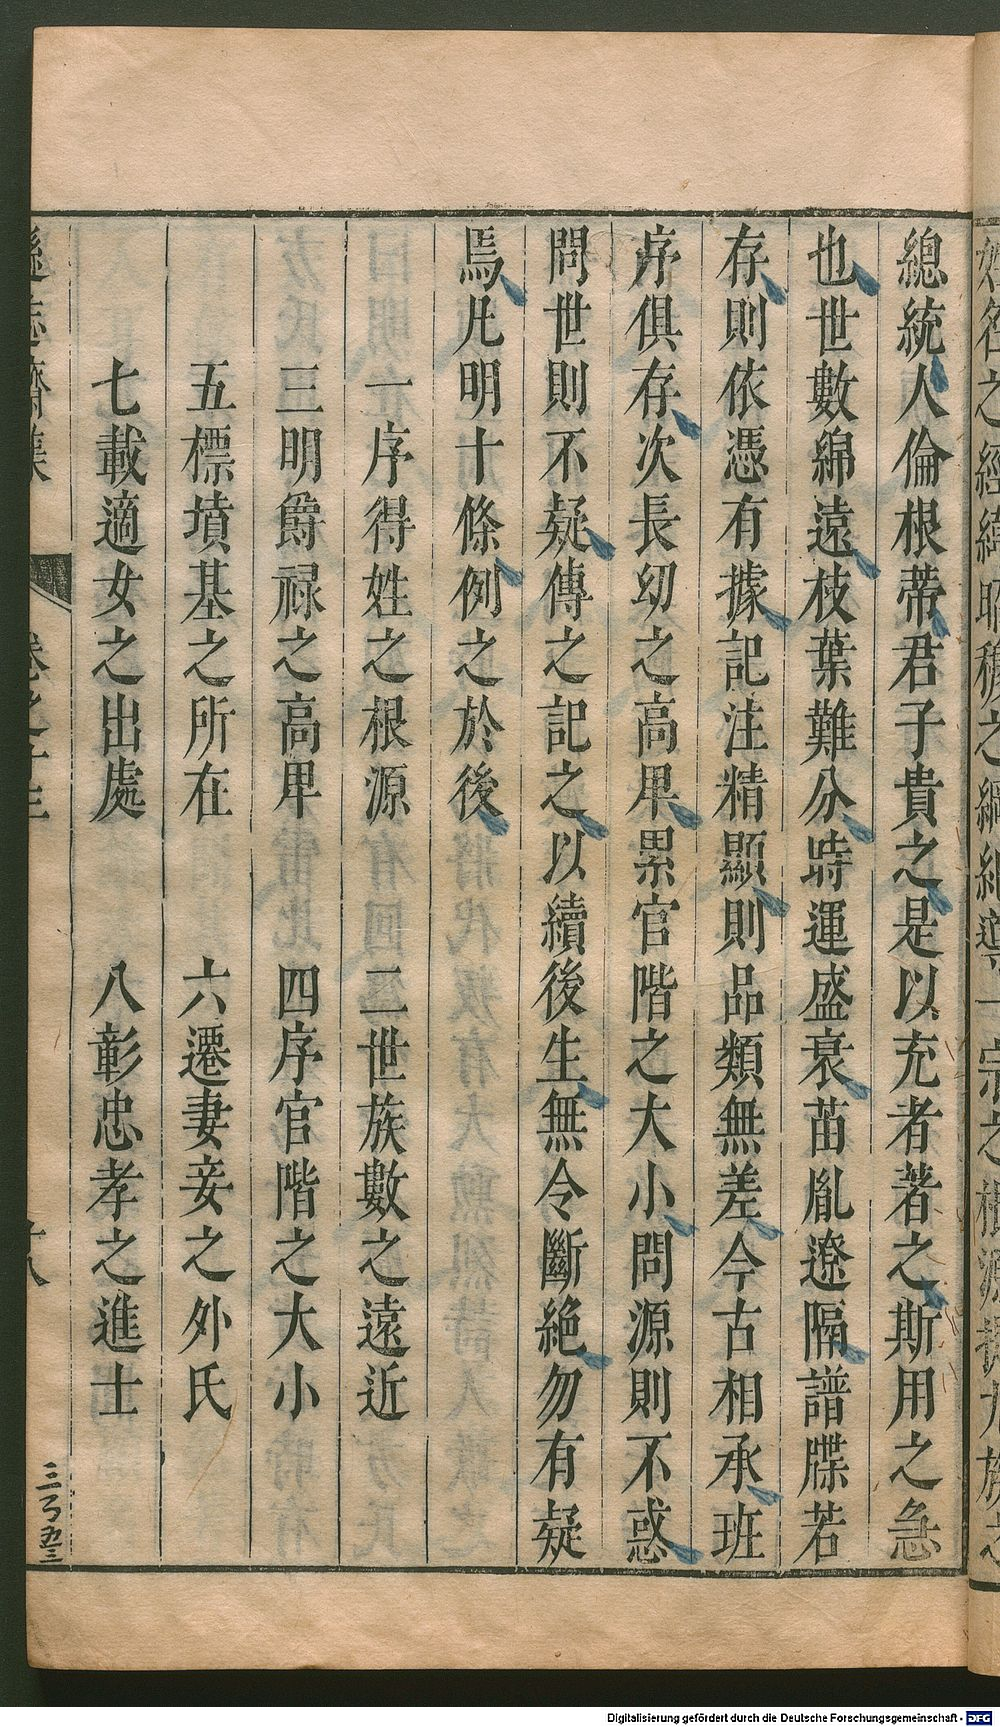 總統人倫根蒂君子貴之是以充者著之斯用之急
也世數綿遠枝葉難分時運盛衰苗胤遼隔譜牒若
存則依憑有據記注精顯則品類無差今古相承班
序俱存次長幼之高卑累官階之大小問源則不惑
問世則不疑傳之記之以續後生無令斷絕勿有疑
焉凡明十條例之於後
一序得姓之根源 二世族數之遠近
三明爵祿之高卑 四序官階之大小
五標墳基之所在 六遷妻妾之外氏
七載適女之出處 八彰忠孝之進士
遜志齋集 卷之十三 十八
Digitalisierung gefördert durch die Deutsche Forschungsgemeinschaft - DFG